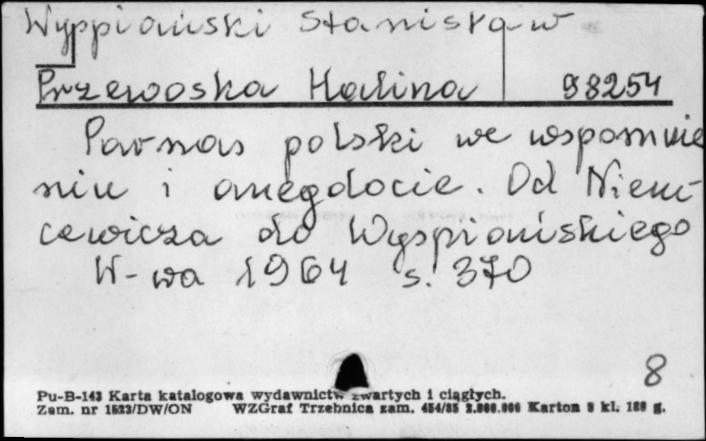 Wyppiański Stanisław
Przewoska Halina 98254
Parnas polski we wspomnie
niu i anegdocie. Od Niem-
cewicza do Wyspiańskiego
W-wa 1964 s. 370
8
Pu-B-143 Karta katalogowa wydawnictw zwartych i ciągłych.
Zam. nr 1523/DW/ON WZGraf Trzebnica zam. 454/85 2.000.000 Karton 8 kl. 180 g.